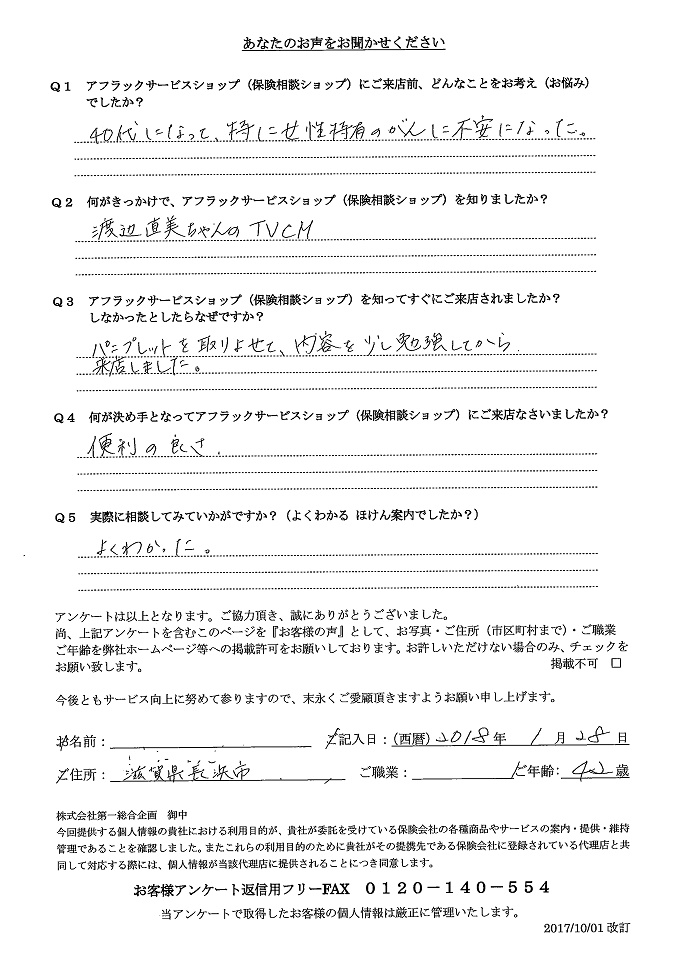 あなたのお声をお聞かせください
Q1 アフラックサービスショップ（保険相談ショップ）にご来店前、どんなことをお考え（お悩み）
でしたか？
40代になって、特に女性特有のがんに不安になった。
Q2 何がきっかけで、アフラックサービスショップ（保険相談ショップ）を知りましたか？
渡辺直美ちゃんのTVCM
Q3 アフラックサービスショップ（保険相談ショップ）を知ってすぐにご来店されましたか？
しなかったとしたらなぜですか？
パンプレットを取りよせて、内容を少し勉強してから
来店しました。
Q4 何が決め手となってアフラックサービスショップ（保険相談ショップ）にご来店なさいましたか？
便利の良さ.
Q5 実際に相談してみていかがですか？（よくわかる ほけん案内でしたか？）
よくわかった。
アンケートは以上となります。ご協力頂き、誠にありがとうございました。
尚、上記アンケートを含むこのページを『お客様の声』として、お写真・ご住所（市区町村まで）・ご職業
ご年齢を弊社ホームページ等への掲載許可をお願いしております。お許しいただけない場合のみ、チェックを
お願い致します。 掲載不可 □
今後ともサービス向上に努めて参りますので、末永くご愛顧頂きますようお願い申し上げます。
お名前： ご記入日：（西暦）2018年 1月28日
ご住所： 滋賀県長浜市 ご職業： ご年齢：42歳
株式会社第一総合企画 御中
今回提供する個人情報の貴社における利用目的が、貴社が委託を受けている保険会社の各種商品やサービスの案内・提供・維持
管理であることを確認しました。またこれらの利用目的のために貴社がその提携先である保険会社に登録されている代理店と共
同して対応する際には、個人情報が当該代理店に提供されることにつき同意します。
お客様アンケート返信用フリーFAX 0120－140－554
当アンケートで取得したお客様の個人情報は厳正に管理いたします。
2017/10/01 改訂